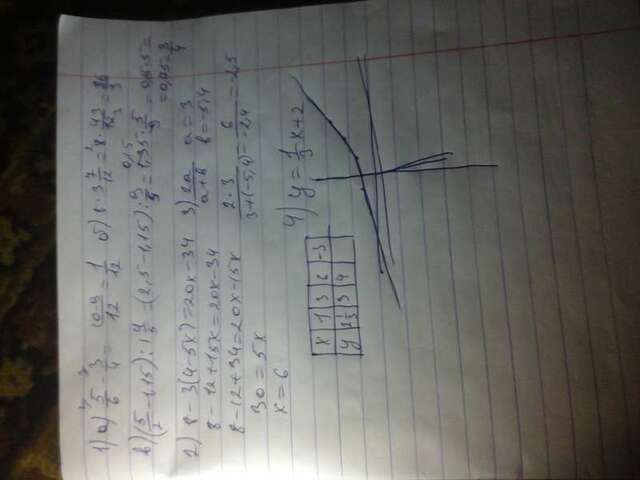 1) а) 5/6 - 3/4 = 10-9/12 = 1/12 б) 8·3 7/12 = 8·43/12 = 86/3
в) (5/2 - 1,15) : 1 4/5 = (2,5-1,15) : 9/5 = 1,35·5/9 = 0,15·5 =
= 0,75 = 3/4
2) 8-3(4-5x)=20x-34
8-12+15x=20x-34
8-12+34=20x-15x
30=5x
x=6
3) 2a/a+b a=3
b=-5,4
2·3/3+(-5,4) = 6/-2,4 = -2,5
4) y=1/3 x+2
x 1 3 6 -3
y 2 1/3 3 4